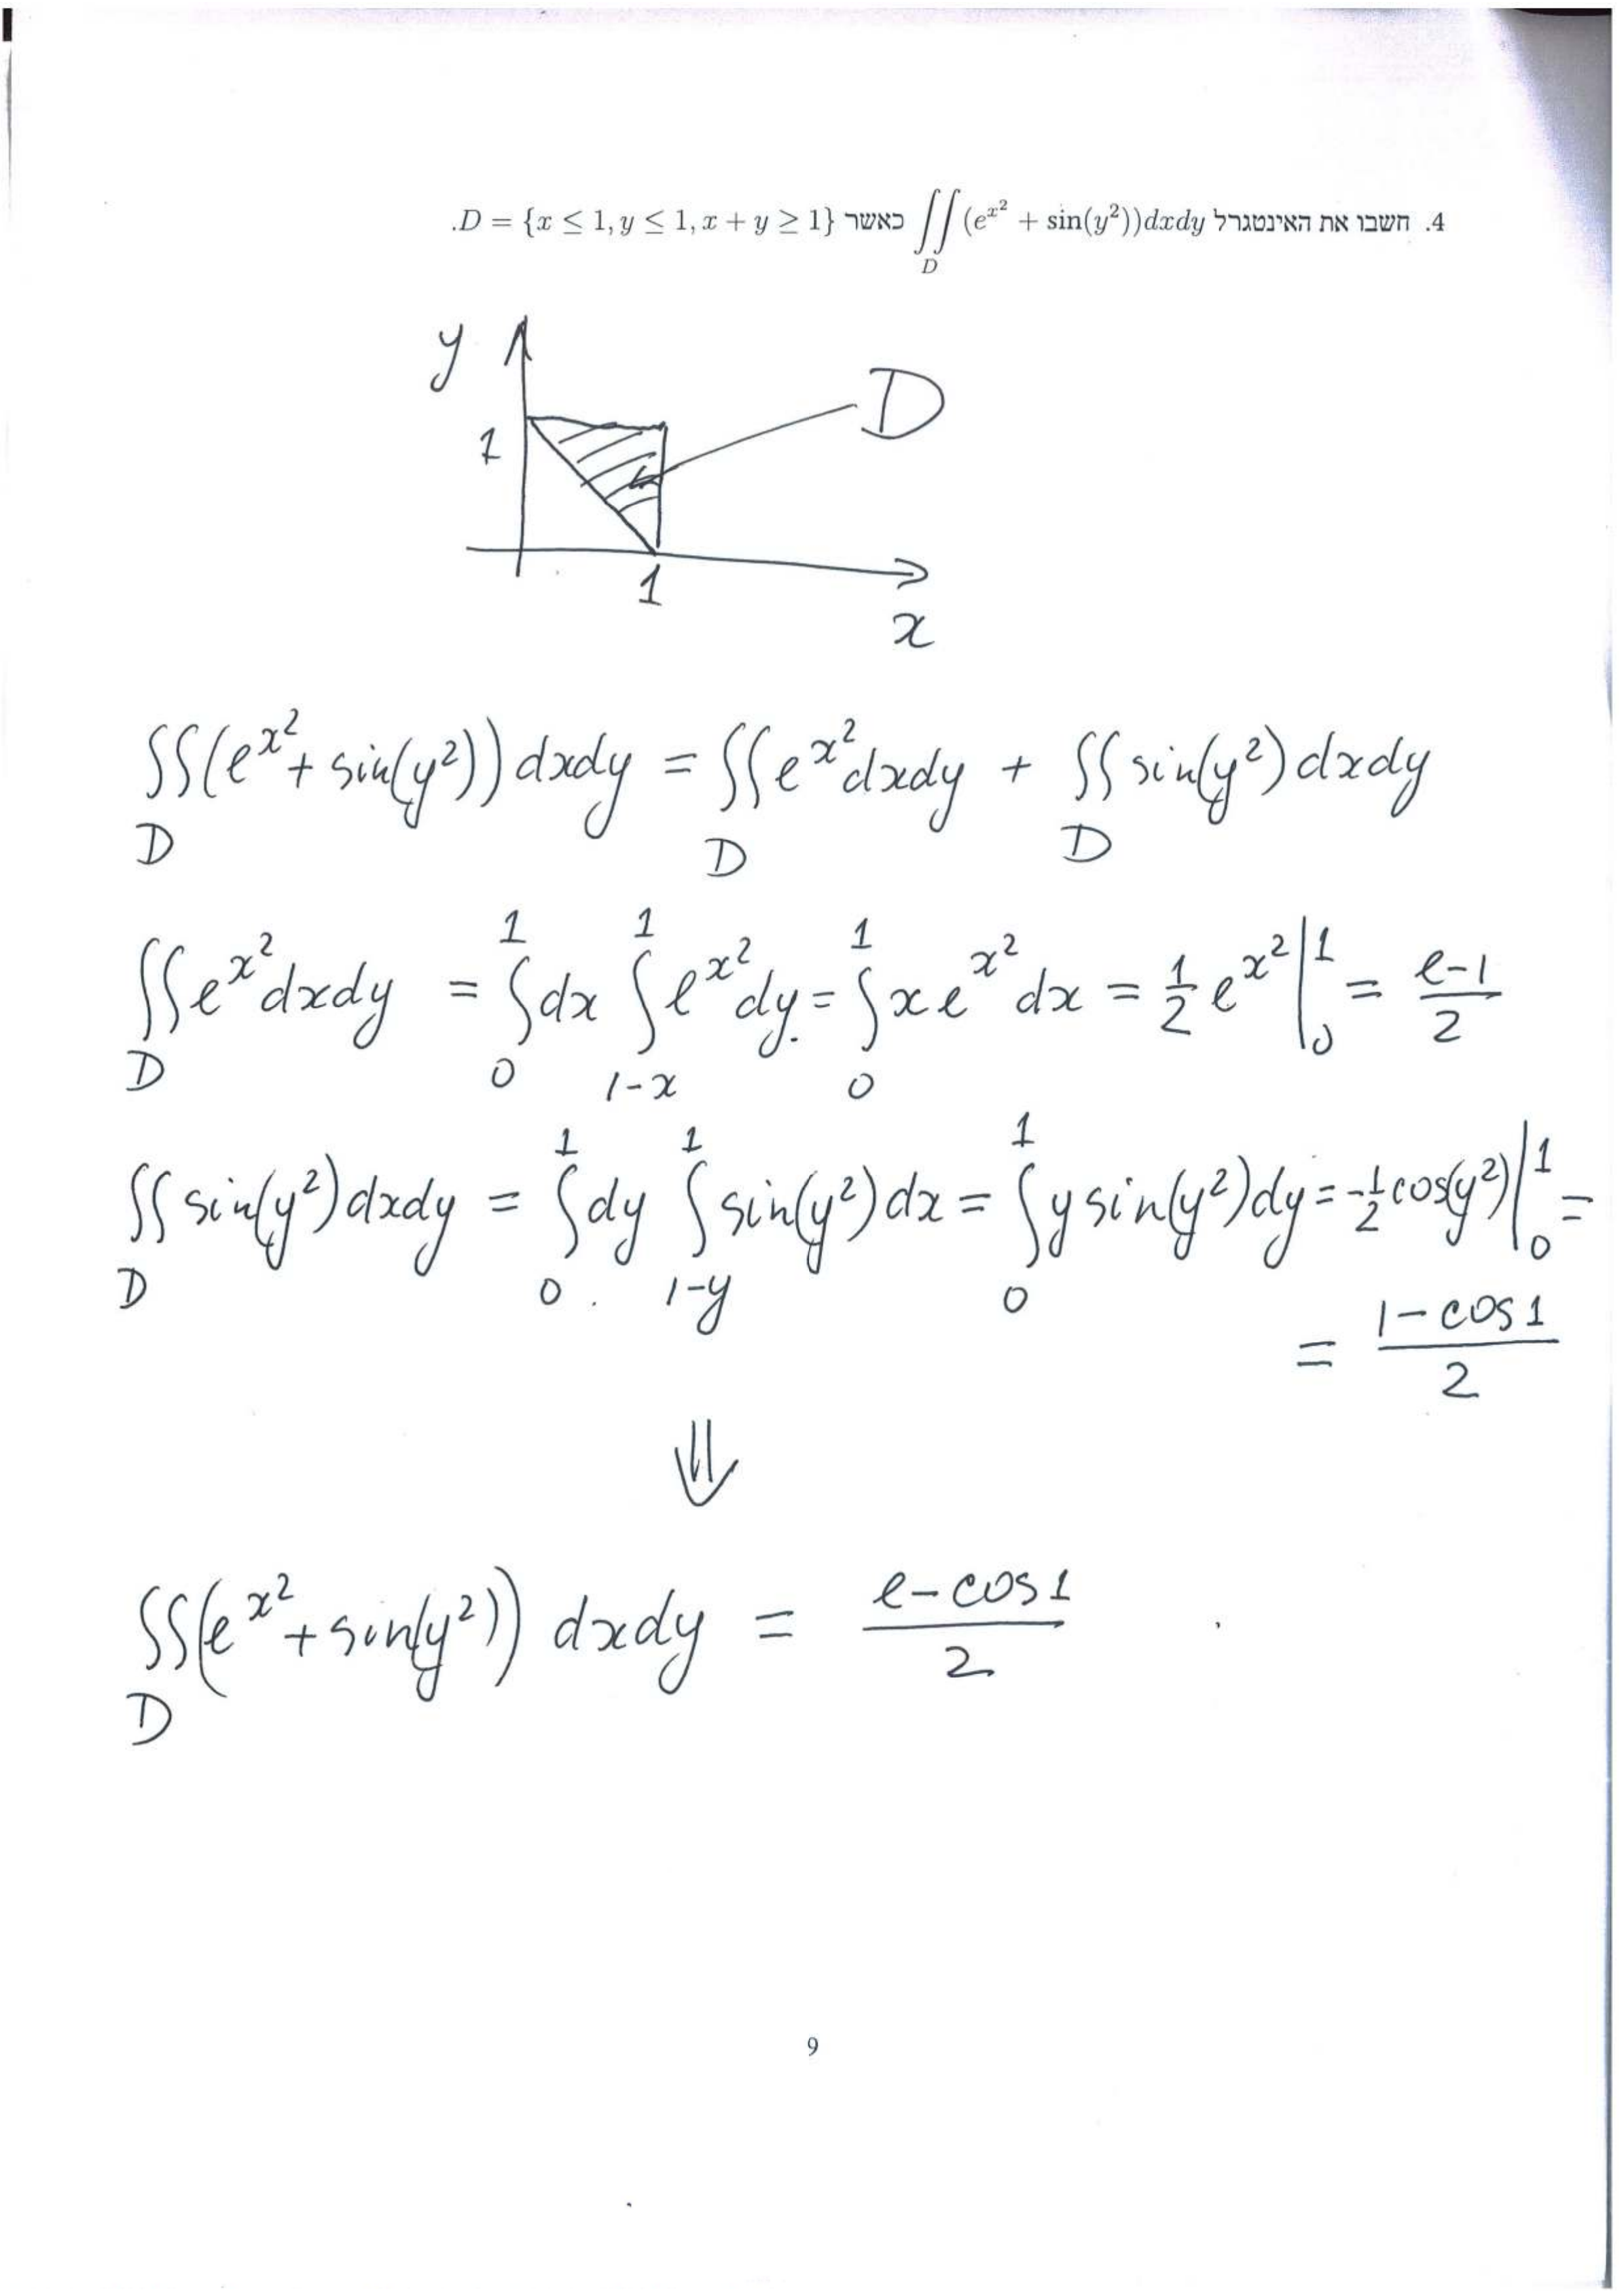 4. חשבו את האינטגרל ∬_D (e^{x^2} + sin(y^2))dxdy כאשר D = {x ≤ 1, y ≤ 1, x + y ≥ 1}.
y
D
1
1
x
∬_D (e^{x^2} + sin(y^2)) dxdy = ∬_D e^{x^2} dxdy + ∬_D sin(y^2) dxdy
∬_D e^{x^2} dxdy = ∫_0^1 dx ∫_{1-x}^1 e^{x^2} dy = ∫_0^1 x e^{x^2} dx = 1/2 e^{x^2} |_0^1 = (e-1)/2
∬_D sin(y^2) dxdy = ∫_0^1 dy ∫_{1-y}^1 sin(y^2) dx = ∫_0^1 y sin(y^2) dy = -1/2 cos(y^2) |_0^1 =
= (1 - cos1)/2
⇓
∬_D (e^{x^2} + sin(y^2)) dxdy = (e - cos1)/2
9